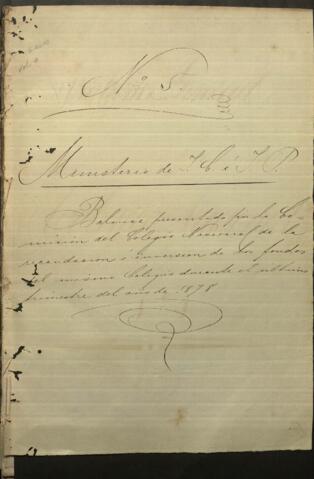 Nº 5
Ministerio de J. C. é I. P.
Balance presentado por la Co-
mision del Colegio Nacional de la
recaudacion e inversion de los fondos
del mismo Colegio durante el ultimo
trimestre del año de 1878